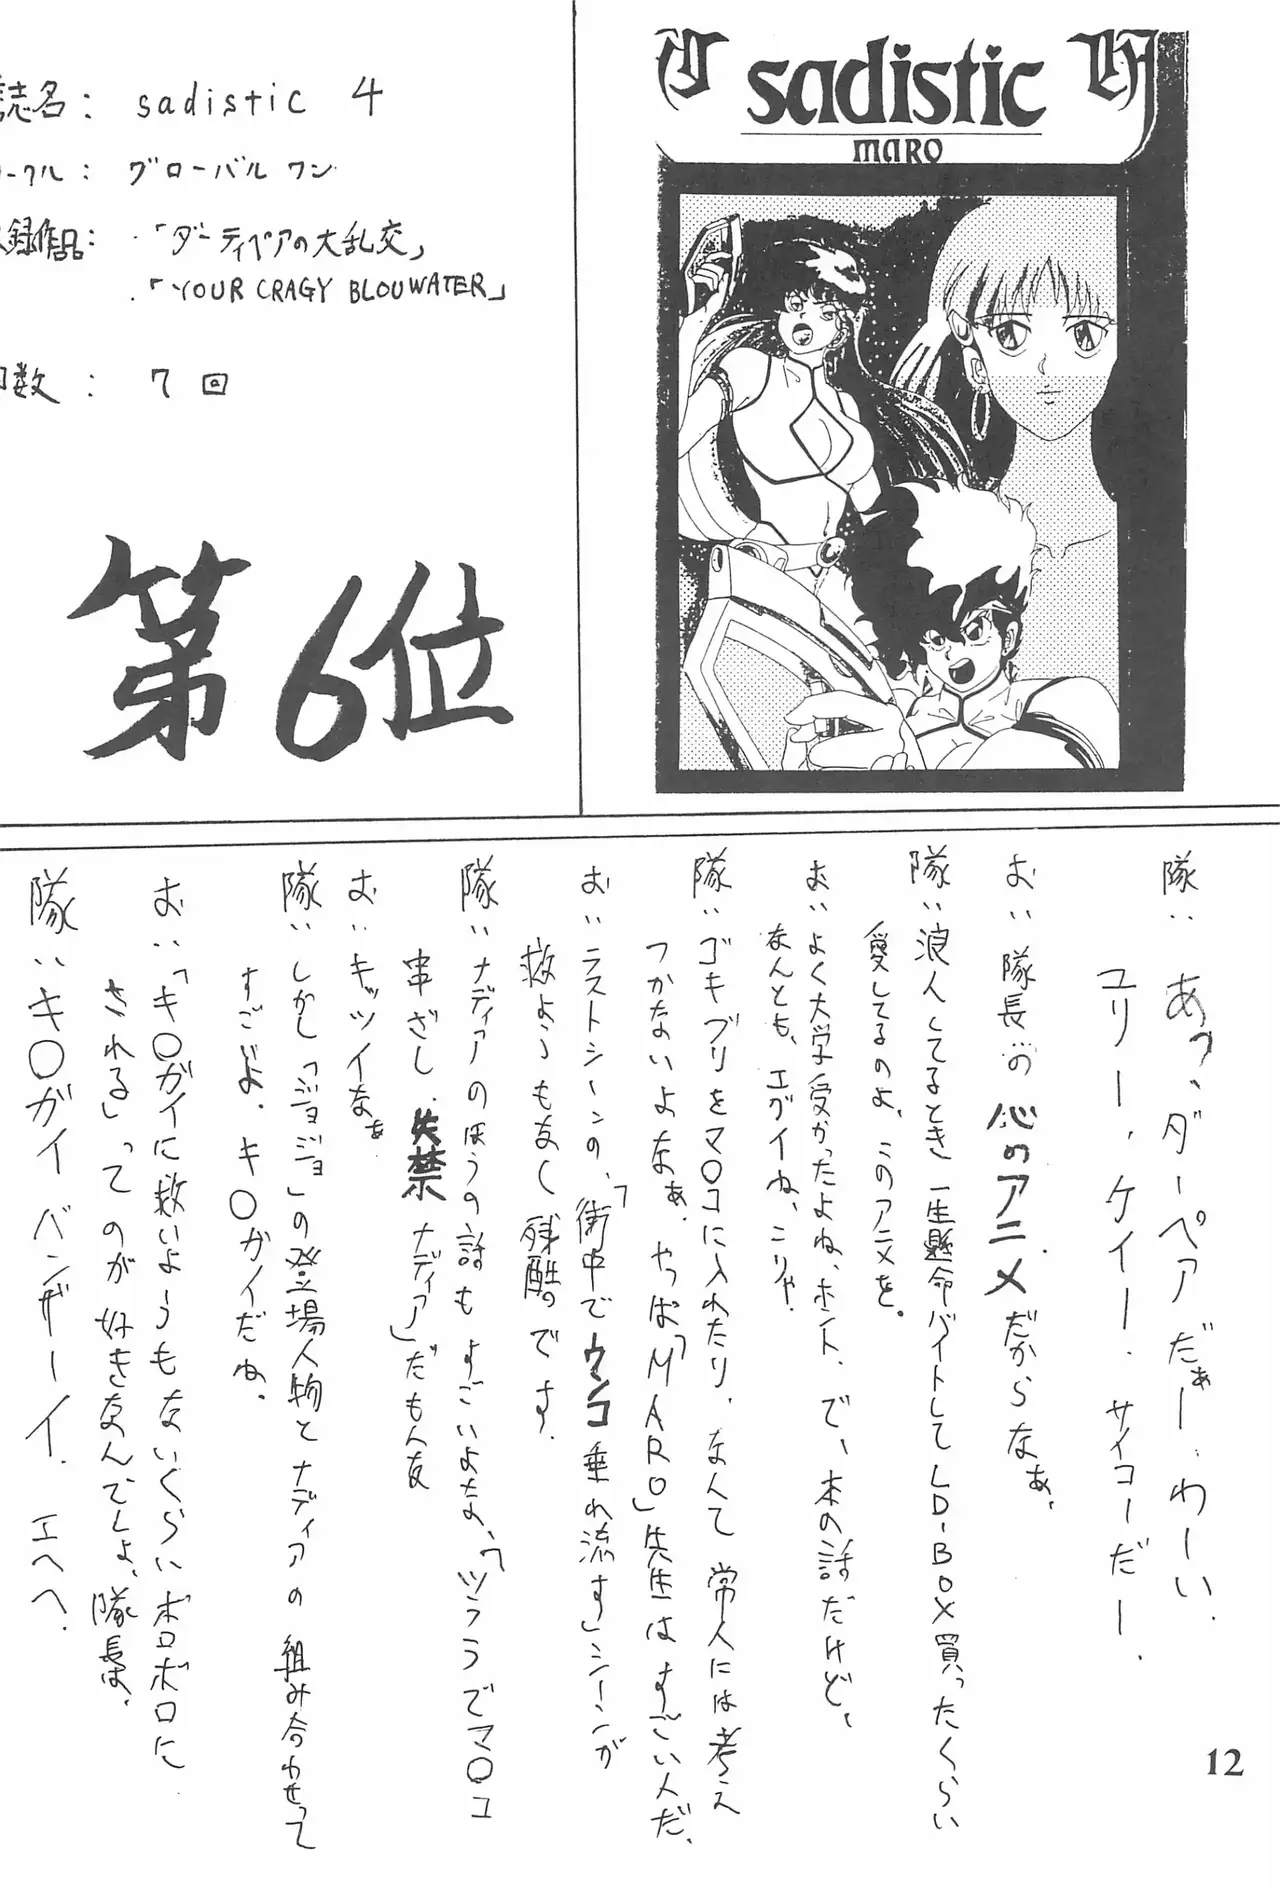 誌名: sadistic 4
ークル: グローバルワン
録作品: ・「ダーティペアの大乱交」
・「YOUR CRAGY BLOUWATER」
回数: 7回
第6位
sadistic
MARO
隊:あっ、ダーペアだぁー。わーい。
ユリー、ケイー、サイコーだー。
お:隊長の心のアニメだからなぁ。
隊:浪人してるとき一生懸命バイトしてLD-BOX買ったくらい
愛してるのよ、このアニメを。
お:よく大学受かったよね、ホント。で、本の話だけど、
なんとも、エグイね、こりゃ。
隊:ゴキブリをマ○コに入れたり、なんて常人には考え
つかないよなぁ。やっぱ「MARO」先生はすごい人だ。
お:ラストシーンの、「街中でウンコ垂れ流す」シーンが
救よーもなく残酷のです。
お:キッツイなぁ
隊:しかし「ジョジョ」の登場人物とナディアの組み合わせって
すごいよ。キ○ガイだね。
お:「キ○ガイに救いようもないくらいボロボロに
される」ってのが好きなんでしょ、隊長は。
隊:キ○ガイバンザーイ。エヘヘ。
12